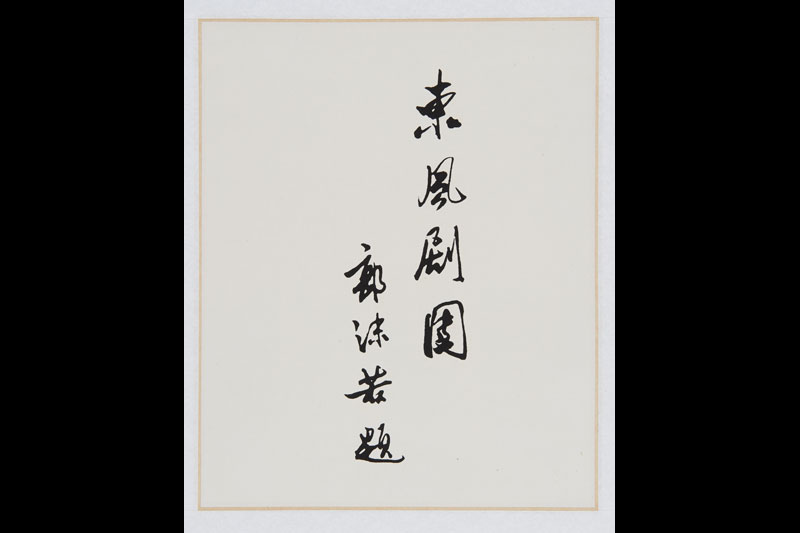 東風剧團
郭沫若題